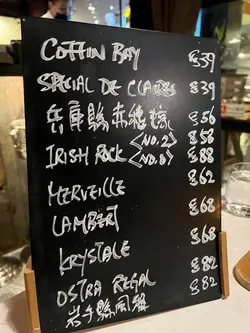 COFFIN BAY $39
SPECIAL DE CLAIRES $39
兵庫縣赤穗蠔 $56
<NO.2> $58
IRISH ROCK $88
MERVEILLE $62
LAMBERT $68
KRYSTALE $68
OSTRA REGAL $82
岩手縣 $82